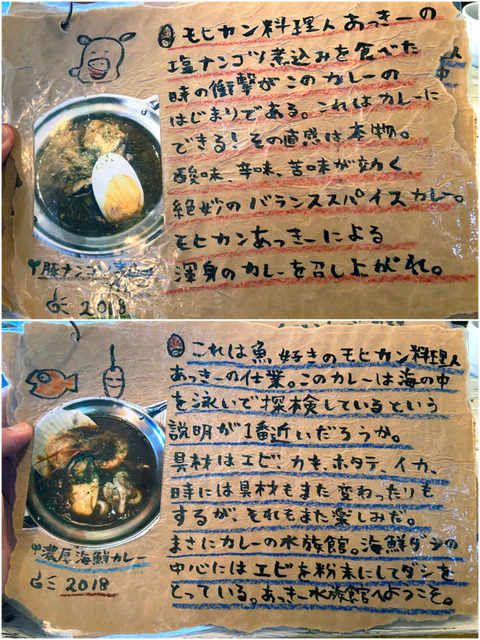 モヒカン料理人あっきーの
塩ナンコツ煮込みを食べた
時の衝撃がこのカレーの
はじまりである。これはカレーに
できる！その直感は本物。
酸味、辛味、苦味が効く、
絶妙のバランススパイスカレー。
モヒカンあっきーによる
渾身のカレーを召し上がれ。
豚ナンコツ
2018
これは魚好きのモヒカン料理人
あっきーの仕業。このカレーは海の中
を泳いで探検しているという
説明が1番近いだろうか。
具材はエビ、カキ、ホタテ、イカ、
時には具材もまた変わったりも
するが、それもまた楽しみだ。
まさにカレーの水族館。海鮮ダシの
中心にはエビを粉末にしてダシを
とっている。あっきー水族館へようこそ。
濃厚海鮮カレー
2018